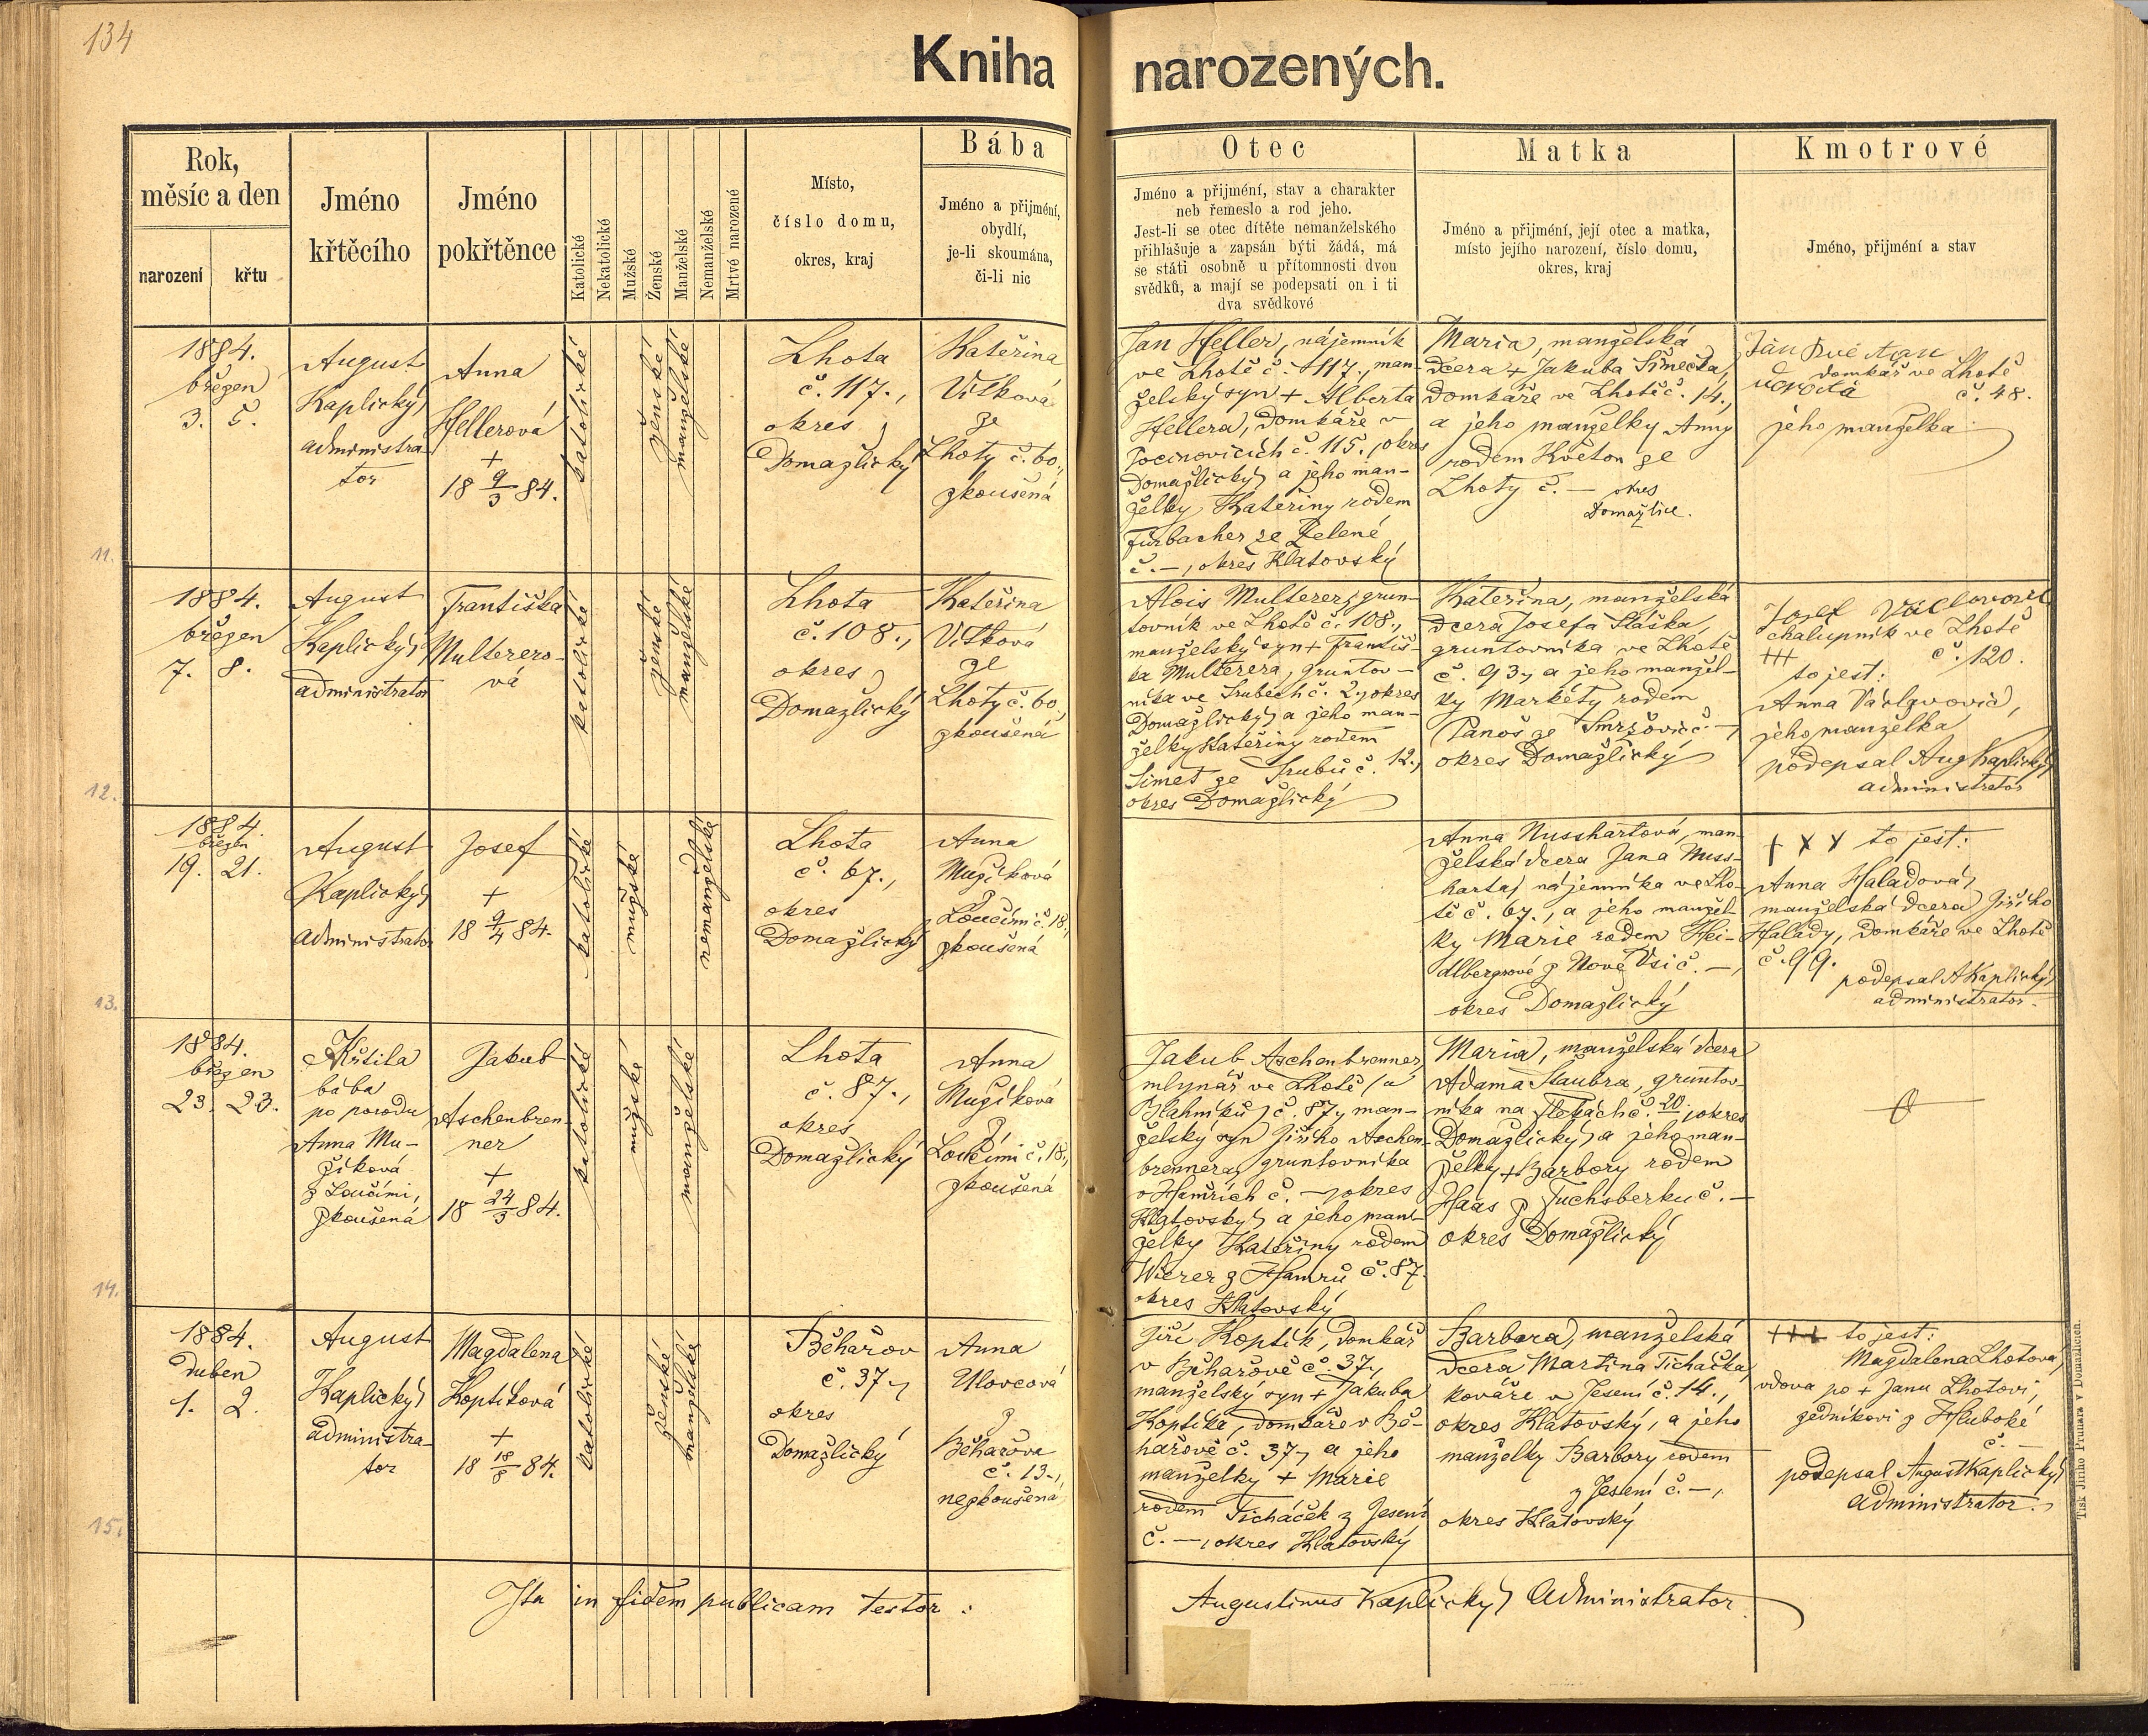 134
Kniha narozených.
Rok,
měsíc a den
narození
křtu
Jméno
křtěcího
Jméno
pokřtěnce
Katolické
Nekatolické
Mužské
Ženské
Manželské
Nemanželské
Mrtvé narozené
Místo,
číslo domu,
okres, kraj
Bába
Jméno a přijmění,
obydlí,
je-li skoumána,
či-li nic
Otec
Jméno a přijmění, stav a charakter
neb řemeslo a rod jeho.
Jest-li se otec dítěte nemanželského
přihlašuje a zapsán býti žádá, má
se státi osobně u přítomnosti dvou
svědků, a mají se podepsati on i ti
dva svědkové
Matka
Jméno a přijmění, její otec a matka,
místo jejího narození, číslo domu,
okres, kraj
Kmotrové
Jméno, přijmění a stav
11.
1884.
březen
3. 5.
August
Kaplický
administra-
tor
Anna
Hellerová
+
18 9/3 84.
katolické
ženské
manželské
Lhota
č. 117.,
okres
Domažlický
Kateřina
Vítková
ze
Lhoty č. 60.,
zkoušená
Jan Heller, nájemník
ve Lhotě č. 117., man-
želský syn + Alberta
Hellera, domkáře v
Pocinovicích č. 115, okres
Domažlický a jeho man-
želky Kateřiny rodem
Fürbacher ze Zelené
č. —, okres Klatovský
Maria, manželská
dcera + Jakuba Šimečka,
domkáře ve Lhotě č. 14.,
a jeho manželky Anny
rodem Květon ze
Lhoty č. — okres
Domažlice.
Jan
domkář ve Lhotě
č. 48.
jeho manželka
12.
1884.
březen
7. 8.
August
Kaplický
administrator
Františka
Multerero-
vá
katolické
ženské
manželské
Lhota
č. 108.,
okres
Domažlický
Kateřina
Vítková
ze
Lhoty č. 60.,
zkoušená
Alois Multerer, grun-
tovník ve Lhotě č. 108.,
manželský syn + Františ-
ka Multerera, gruntov-
níka ve Srubech č. 2, okres
Domažlický a jeho man-
želky Kateřiny rodem
Simet ze Srubů č. 12.,
okres Domažlický
Kateřina, manželská
dcera Josefa Sláška,
gruntovníka ve Lhotě
č. 93, a jeho manžel-
ky Markéty rodem
Panoš ze Smržovic č. —,
okres Domažlický
Jozef Václavovic
chalupník ve Lhotě
+++ č. 120.
to jest:
Anna Václavovic,
jeho manželka
podepsal Aug Kaplický
administrator
13.
1884.
březen
19. 21.
August
Kaplický
administrator
Josef
+
18 9/4 84.
katolické
mužské
nemanželské
Lhota
č. 67.,
okres
Domažlický
Anna
Mužíková
z
Loučimi č. 18.,
zkoušená
Anna Nusshartová, man-
želská dcera Jana Nuss-
harta, nájemníka ve Lho-
tě č. 67., a jeho manžel-
ky Marie rodem Hei-
dlbergrové z Nové Vsi č. —,
okres Domažlický
+ x x to jest:
Anna Haladová,
manželská dcera Jiřího
Halady, domkáře ve Lhotě
č. 99.
podepsal A Kaplický
administrator.
14.
1884.
březen
23. 23.
Křtila
bába
po porodu
Anna Mu-
žíková
z Loučimi,
zkoušená
Jakub
Aschenbren-
ner
+
18 24/3 84.
katolické
mužské
manželské
Lhota
č. 87.,
okres
Domažlický
Anna
Mužíková
z
Loučimi č. 18.,
zkoušená
Jakub Aschenbrenner,
mlynář ve Lhotě (u
Blahníků) č. 87, man-
želský syn Jiřího Aschen-
brennera, gruntovníka
v Hamřích č. —, okres
Klatovský a jeho man-
želky Kateřiny rodem
Wierer z Hamrů č. 87.
okres Klatovský
Maria, manželská dcera
Adama Staubra, gruntov-
níka na Flekách č. 20, okres
Domažlický a jeho man-
želky + Barbory rodem
Haas z Fuchsberku č. —
okres Domažlický
15.
1884.
duben
1. 2.
August
Kaplický
administra-
tor
Magdalena
Koptíková
+
18 18/8 84.
katolické
ženské
manželské
Běhařov
č. 37,
okres
Domažlický
Anna
Ulovcová
z
Běhařova
č. 13.,
nezkoušená
Jiří Koptík, domkář
v Běhařově č. 37,
manželský syn + Jakuba
Koptíka, domkáře v Bě-
hařově č. 37, a jeho
manželky + Marie
rodem Ticháček z Jesení
č. —, okres Klatovský
Barbora, manželská
dcera Martina Ticháčka,
kováře v Jesení č. 14.,
okres Klatovský, a jeho
manželky Barbory rodem
z Jesení č. —,
okres Klatovský
+++ to jest:
Magdalena Lhotová,
vdova po + Janu Lhotovi,
zedníkovi z Hluboké
č. —
podepsal August Kaplický
administrator.
Ita in fidem publicam testor:
Augustinus Kaplický Administrator.
Tisk Jiřího Prunara v Domažlicích.